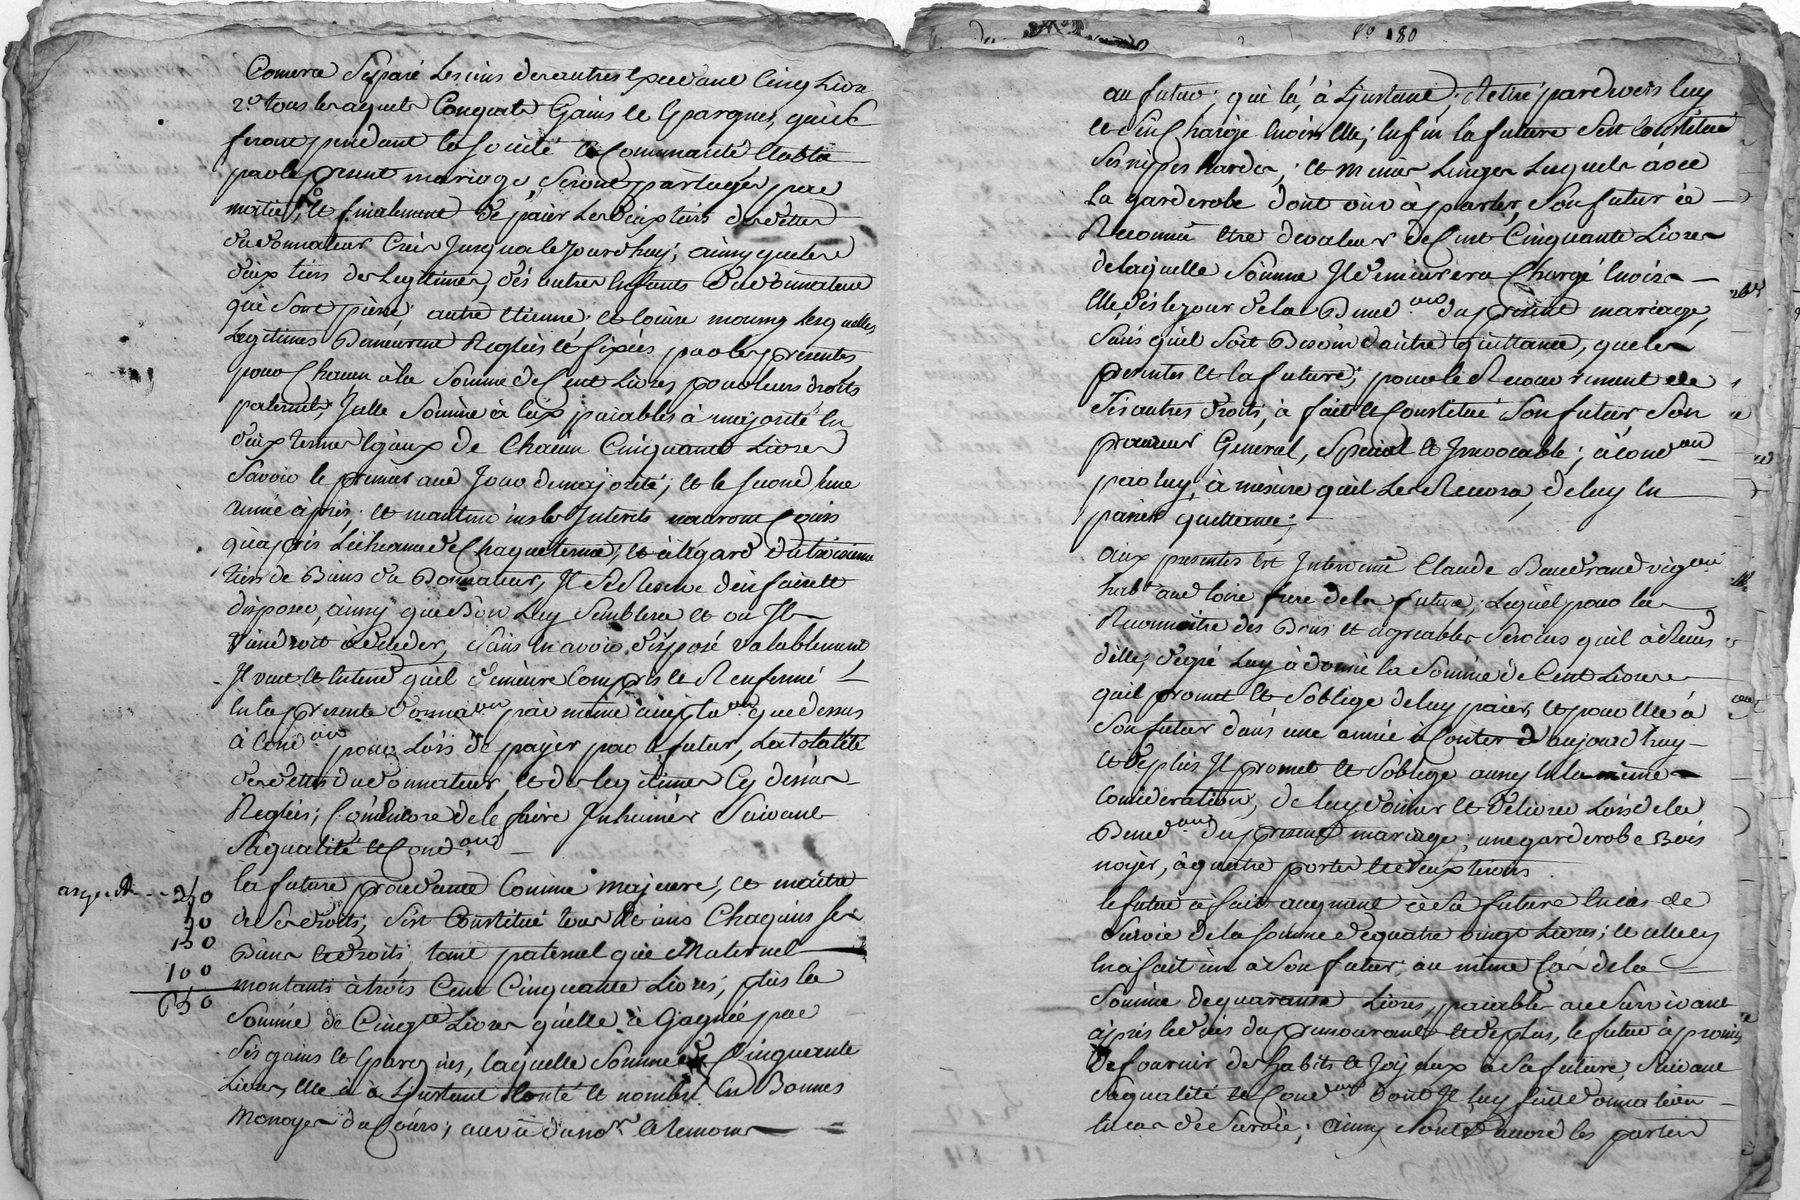 Comera Separé Les uns des autres Exedant Cinq Livre
2.° tous les aquets Conquets Gains et Epargnes, quils
feront pendant la Société et Communauté Etablie
par le present mariage, Seront partagés par
moitié; et finalement de paier les deux tiers des dettes
du donnateur Crées Jusqua le Jourdhuy; ainsy que les
deux tiers des Legitimes, des autres Enfants du donnateur
qui sont pierre, autre Etienne, et louise Lesquelles
Legitimes Demeurent Reglées et fixées par les presentes
pour Chacun a la Somme de Cent Livres pour leurs droits
paternels Jcelle Somme à Eux paiables à majorité En
deux termes Egaux de Chacun Cinquante Livres
Savoir le premier au Jour de majorité; et le second une
année après; et les Interets nauront Cours
qu'après L'echeance de Chaque terme; et à l'égard du troisieme
tiers de Biens du Donnateur, Il se Reserve d'en faire et
disposer, ainsy que Bon Luy Semblera et ou Il
Viendroit à deceder, Sans En avoir disposé valablement
Il veut et Entend qu'il demeure Compris et Renfermé
En la presente donna.on par même que dessus
à Cond.on pour Lors de payer par le futur, La totalité
des dettes du donnateur, et des legitimes Cy dessus
Reglées; Comme Encore de le faire Inhumer Suivant
Sa qualité et Cond.on
la future procedante Comme majeure, et maitre
de Ses droits, S'est Constitué tous et uns Chaquns Ses
Biens et droits, tant paternel que Maternel
montants à trois Cent Cinquante Livres, plus la
Somme de Cinq.te Livres qu'elle à Gagnée par
Ses gains et Epargnes, laquelle Somme de Cinquante
Livres, Elle à à L'instant Conté et nombré En Bonnes
Monoyes du Cours, au vu du no.re et temoins
argent --- 250
50
150
100
650
f° 180
au futur; qui la, à L'instant, Retiré pardevers luy
et S'en Charge Envers Elle; Enfin la future S'est Constitué
Ses nippes hardes, et menus Linges Lesquels avec
La garderobe dont on va à parler, Son futur à
Reconnu Etre de valeur de Cent Cinquante Livres
de laquelle Somme Il demeurera Chargé Envers
Elle dés le jour de la Bened.on du present mariage,
Sans qu'il Soit Besoin d'autre quittance, que les
presentes et la future, pour le Recouvrement de
Ses autres droits, à fait et Constitué Son futur Son
procureur General, Special et Irrevocable; à Cond.on
par luy, à mesure qu'il Les Recevra, de luy En
passer quittance;
aux presentes Est Intervenu Claude Beaudrand vigno.n
hab.t aud. loire frere de la future; Lequel pour la
Reconnoitre des Bons et agreables Services qu'il à Recus
d'elle, de gré Luy à donné la Somme de Cent Livres
qu'il promet et S'oblige de luy paier, et pour Elle à
Son futur dans une année à Conter d'aujourd'huy
et de plus Il promet et S'oblige aussy En la même
Consideration, de luy donner et délivrer Lors de la
Bened.on du present mariage; une garderobe Bois
noyer, à quatre portes et deux tiroirs.
le futur à fait augment à Sa future En cas de
Survie de la Somme de quatre vingt Livres; et Celle cy
En à fait un à Son futur, au même Cas de la
Somme de quarante Livres, paiable au Survivant
après le décés du premourant et de plus, le futur à promis
de fournir des habits et Joyaux à Sa future, Suivant
Sa qualité et Cond.on dont Il luy fait donnation
En cas de Survie; ainsy Sont les parties